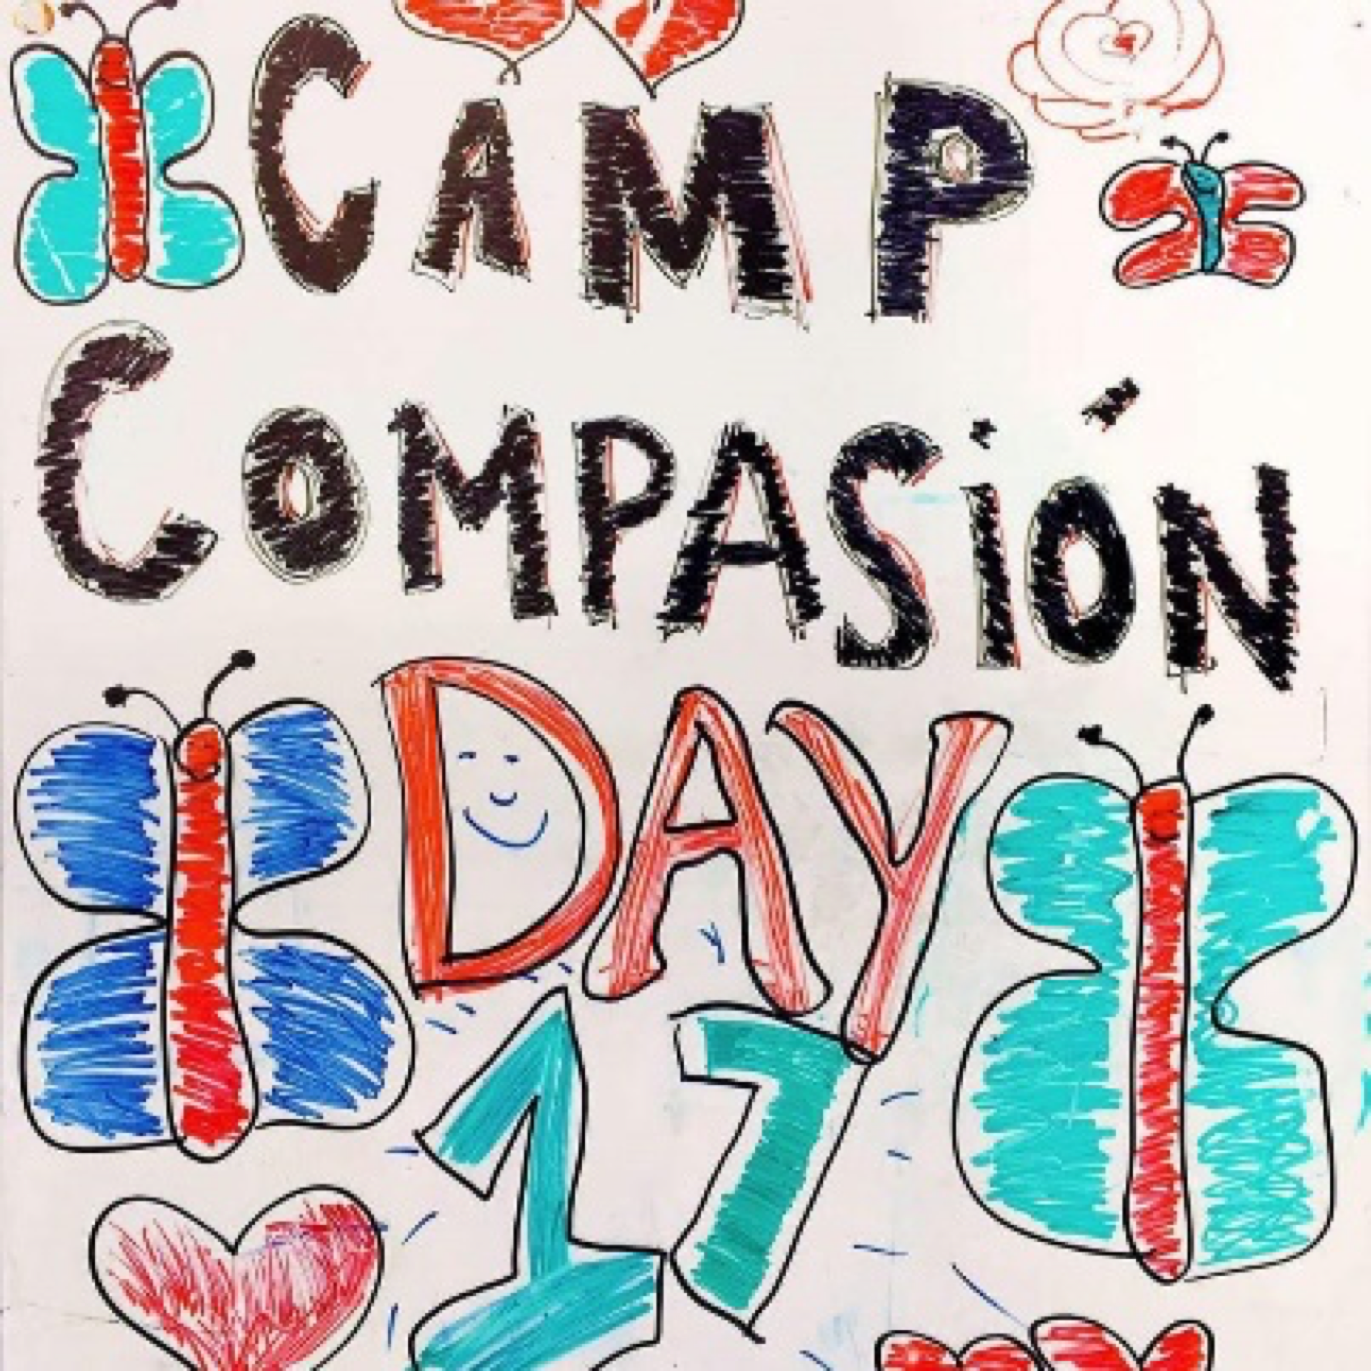 CAMP
COMPASiÓN
DAY
17